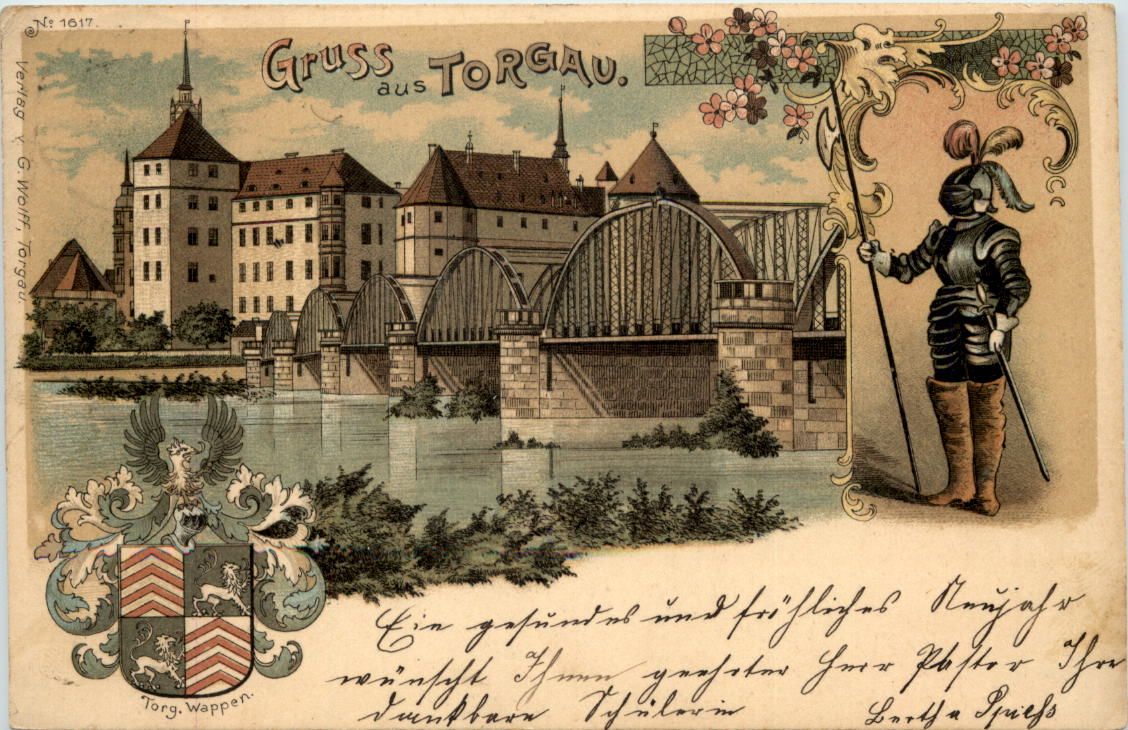 No 1617.
Gruss aus TORGAU.
Verlag v. G. Wolff, Torgau.
Torg. Wappen.
Ein gesundes und fröhliches Neujahr
wünscht Ihnen geehrter Herr Pastor Ihre
dankbare Schülerin
Bertha Spiehs